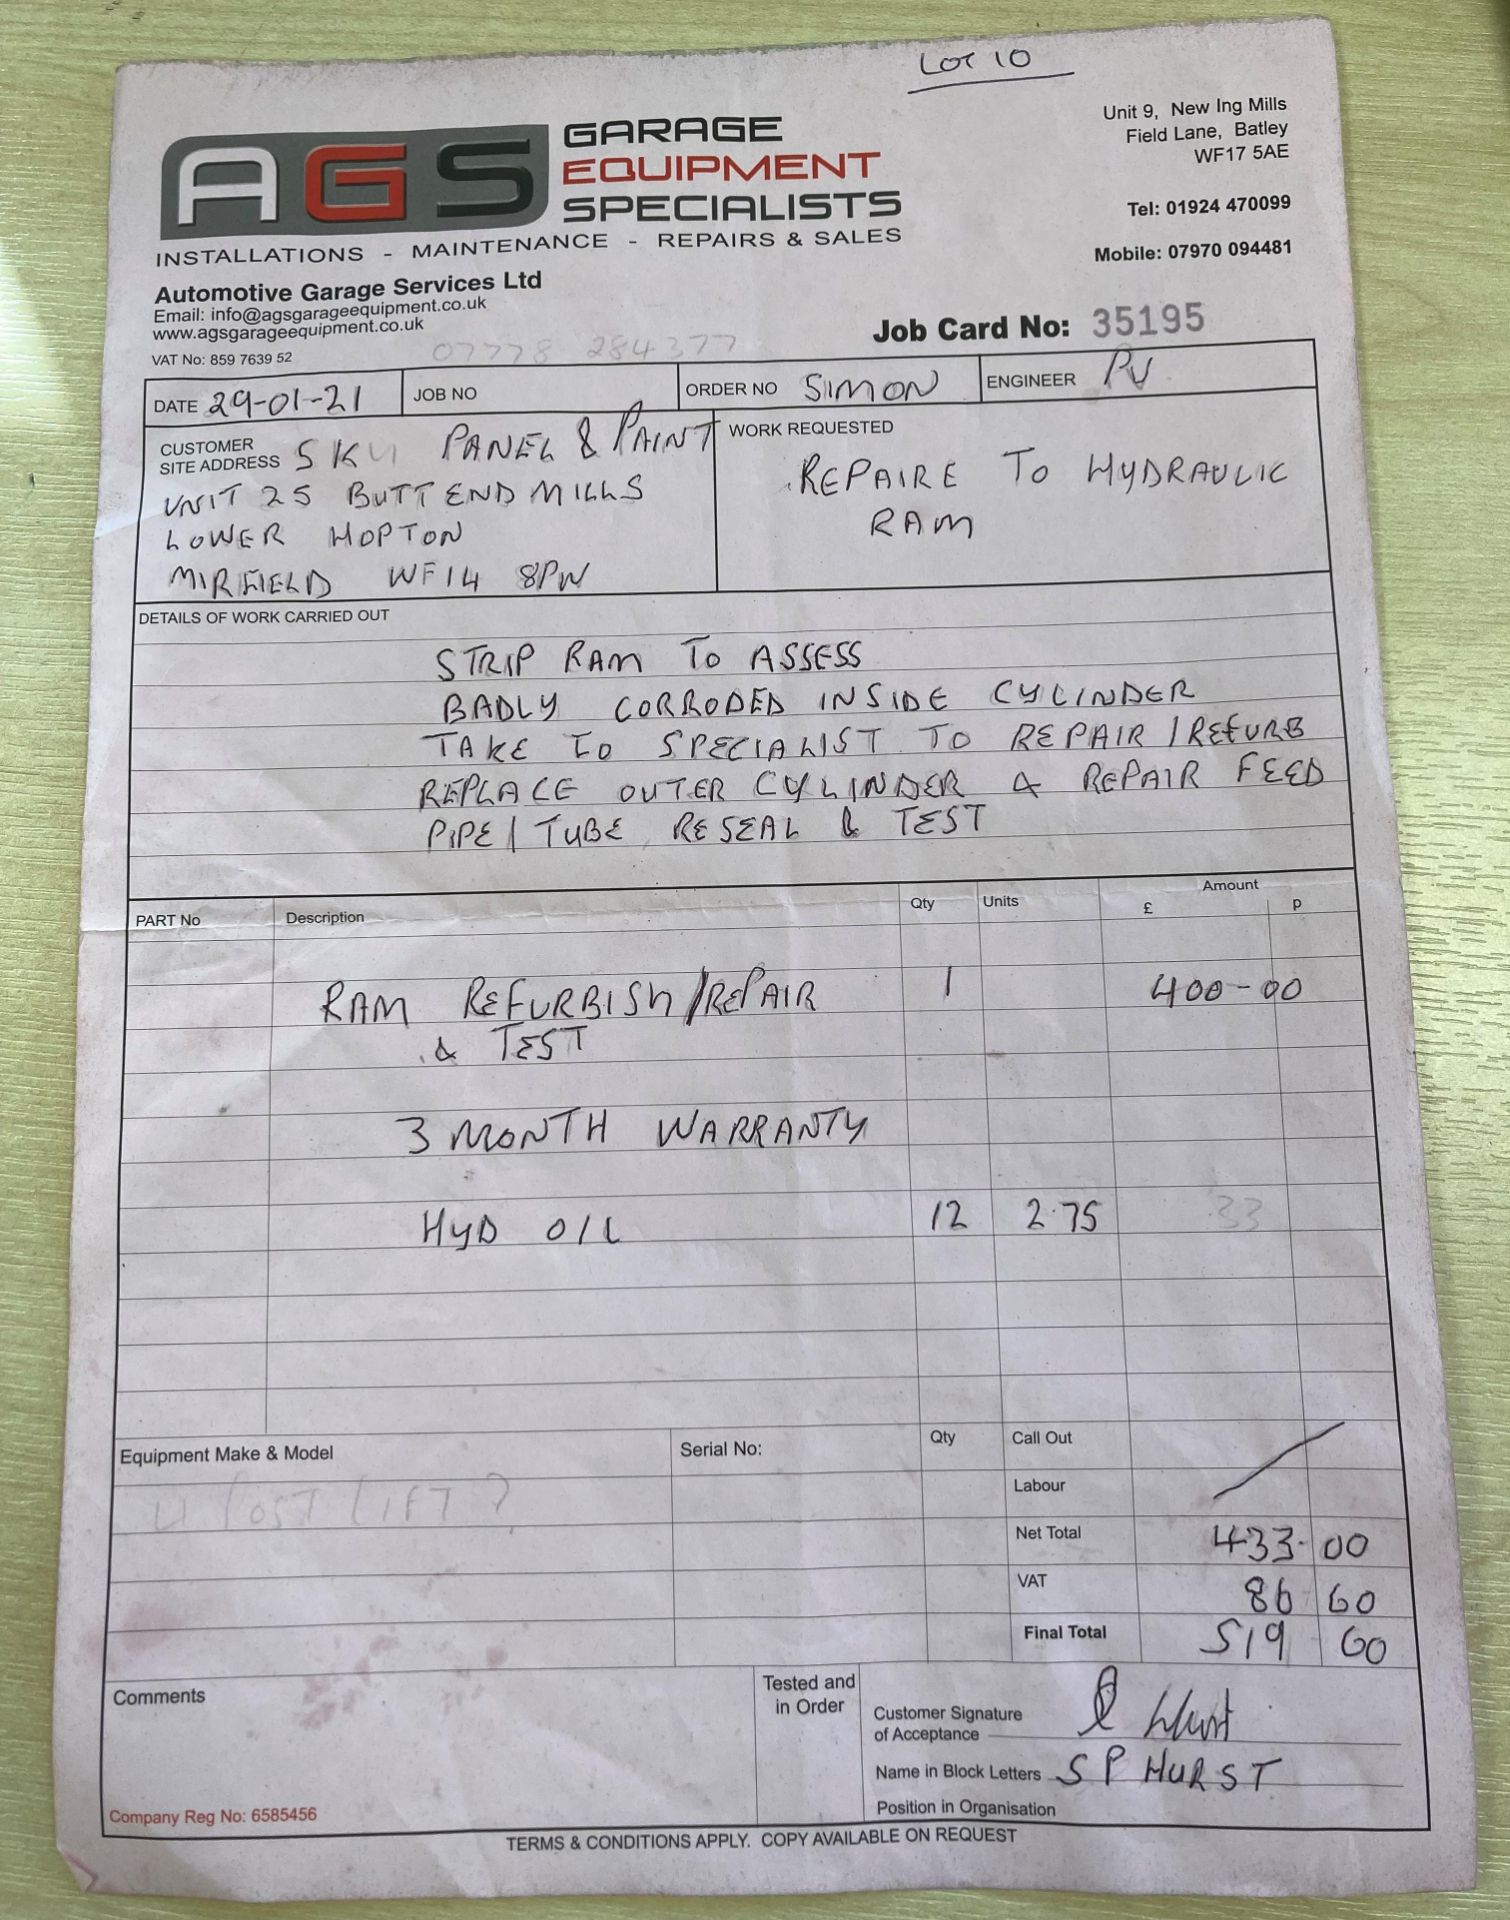 LOT 10
AGS GARAGE EQUIPMENT SPECIALISTS
INSTALLATIONS - MAINTENANCE - REPAIRS & SALES
Unit 9, New Ing Mills
Field Lane, Batley
WF17 5AE
Tel: 01924 470099
Mobile: 07970 094481
Automotive Garage Services Ltd
Email: info@agsgarageequipment.co.uk
www.agsgarageequipment.co.uk
VAT No: 859 7639 52
07778 284377
Job Card No: 35195
DATE 29-01-21 JOB NO ORDER NO SIMON ENGINEER PV
CUSTOMER SITE ADDRESS SKU PANEL & PAINT
UNIT 25 BUTT END MILLS
LOWER HOPTON
MIRFIELD WF14 8PW
WORK REQUESTED
REPAIRE TO HYDRAULIC
RAM
DETAILS OF WORK CARRIED OUT
STRIP RAM TO ASSESS
BADLY CORRODED INSIDE CYLINDER
TAKE TO SPECIALIST TO REPAIR/REFURB
REPLACE OUTER CYLINDER & REPAIR FEED
PIPE/TUBE RESEAL & TEST
PART No Description Qty Units Amount £ p
RAM REFURBISH/REPAIR 1 400-00
& TEST
3 MONTH WARRANTY
HYD OIL 12 2.75 33
Equipment Make & Model Serial No: Qty Call Out
4 POST LIFT? Labour
Net Total 433.00
VAT 86 60
Final Total 519 60
Comments
Tested and in Order
Customer Signature of Acceptance
Name in Block Letters S P HURST
Position in Organisation
Company Reg No: 6585456
TERMS & CONDITIONS APPLY. COPY AVAILABLE ON REQUEST